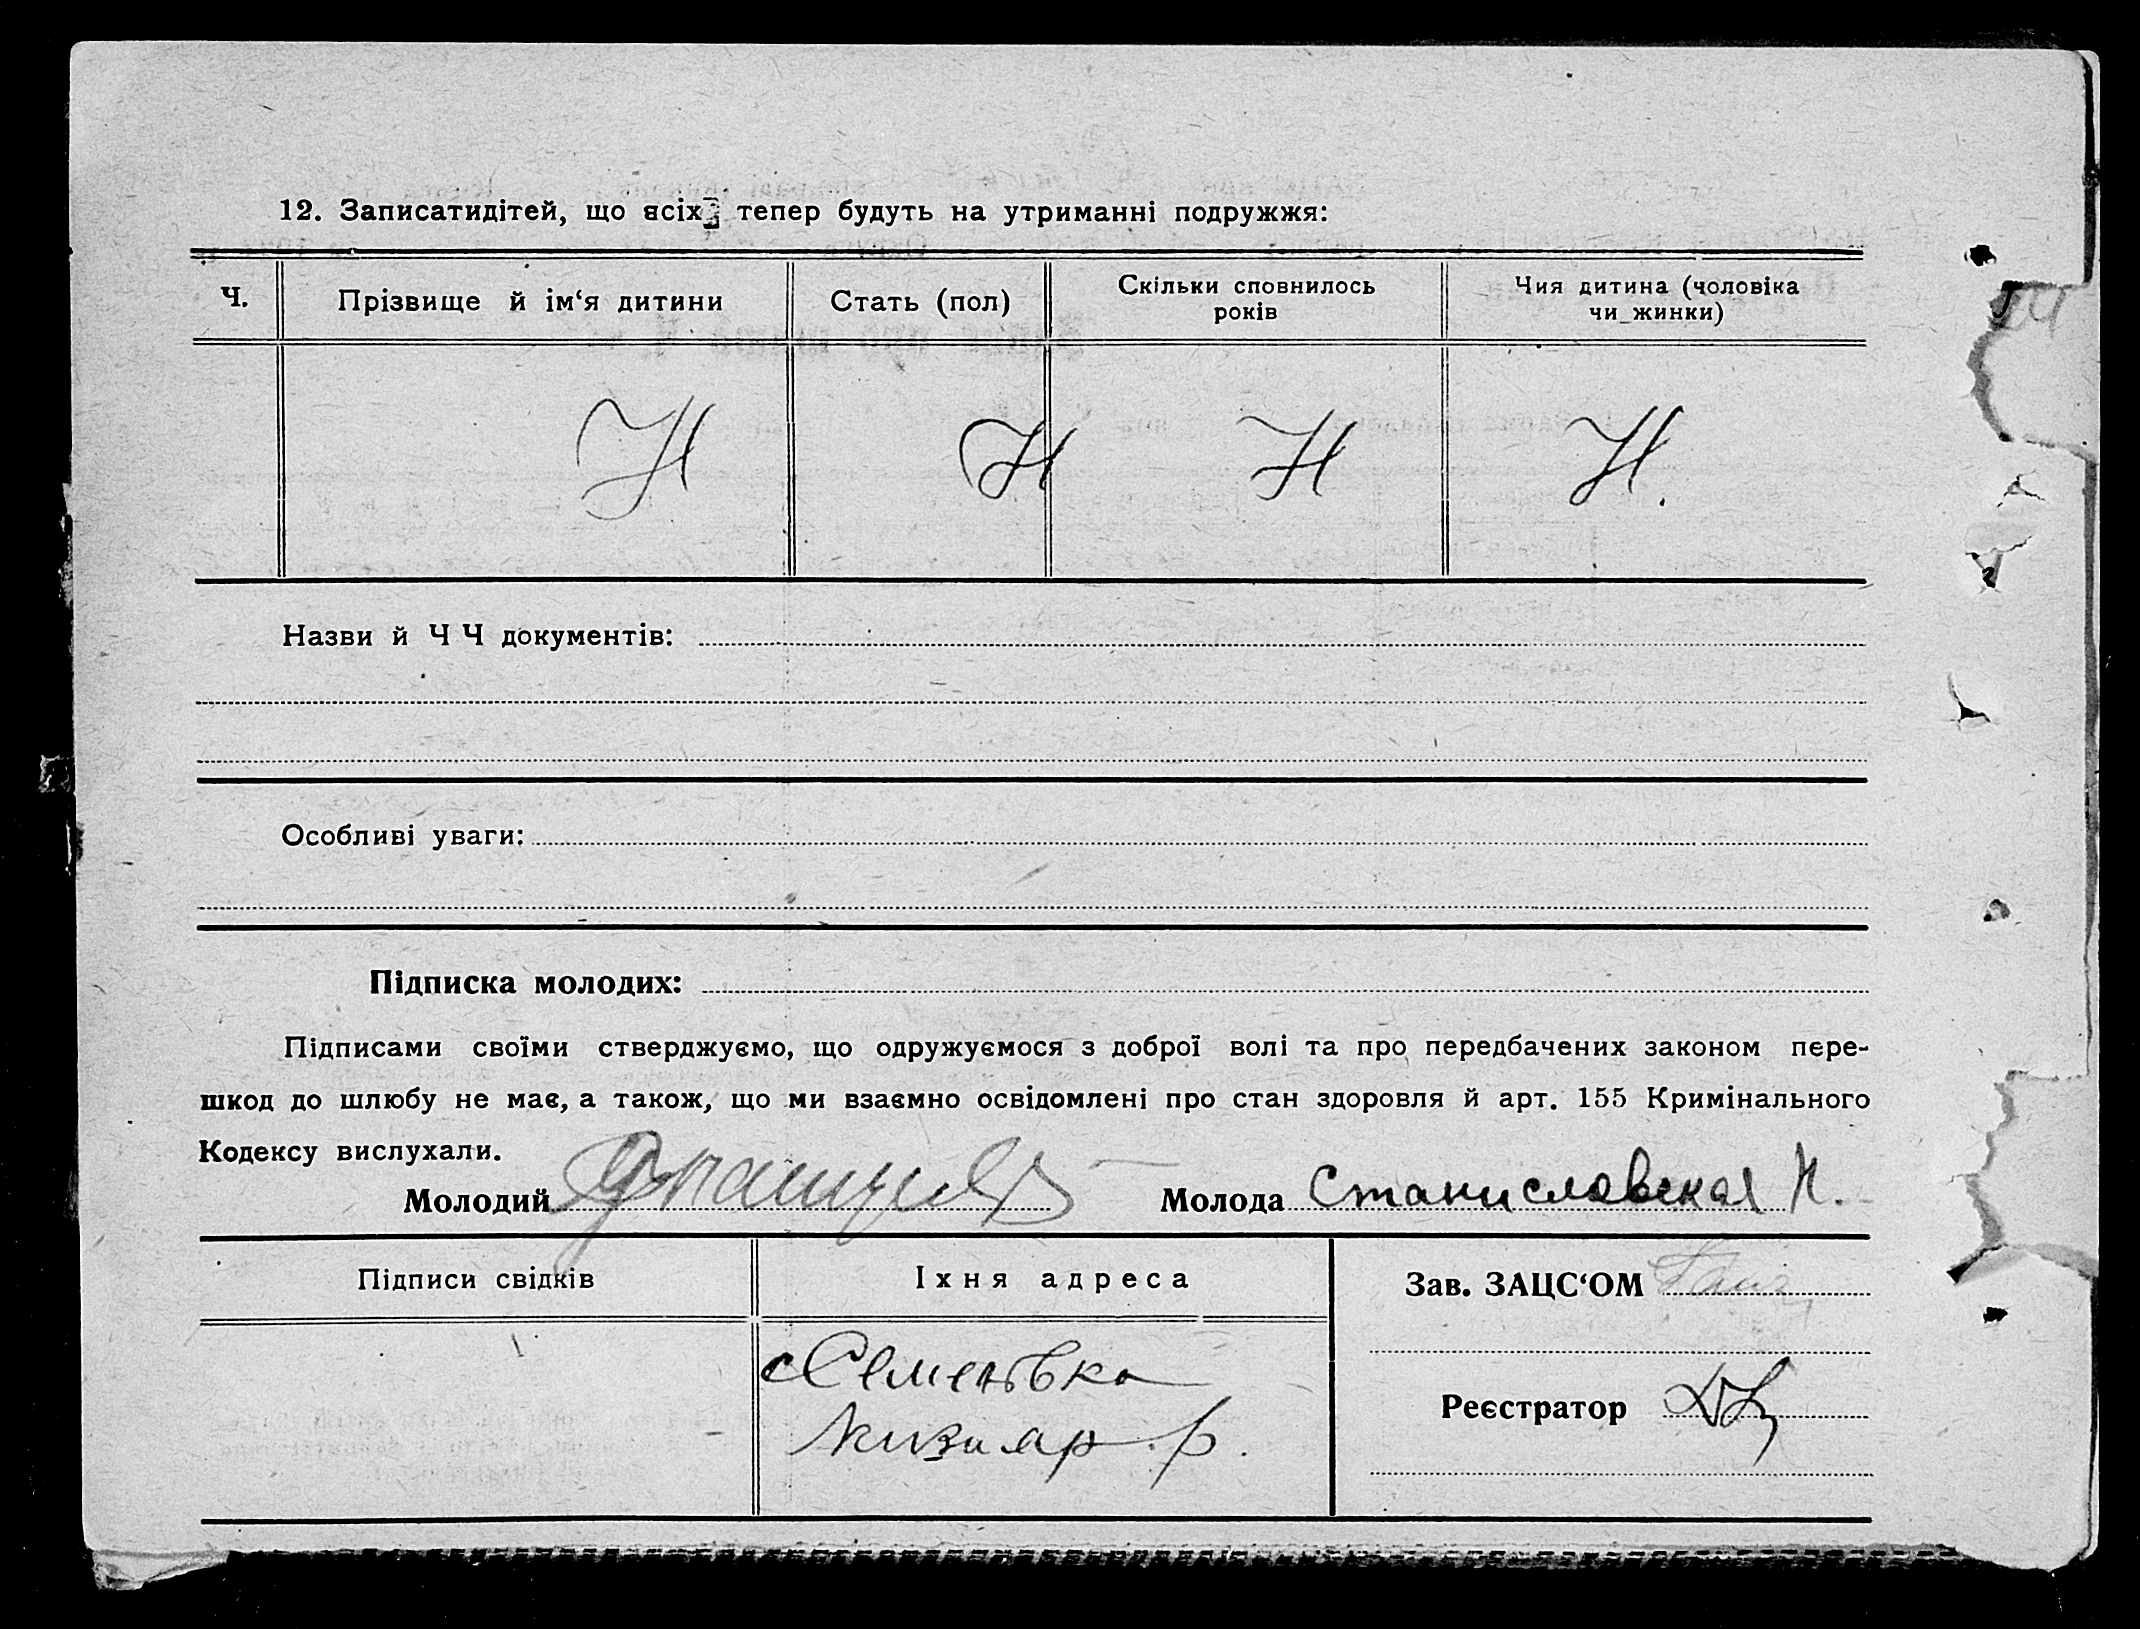 12. Записатидітей, що всіх тепер будуть на утриманні подружжя:
Ч. Прізвище й ім‘я дитини Стать (пол) Скільки сповнилось років Чия дитина (чоловіка чи жинки)
Н Н Н Н.
Назви й Ч Ч документів:
Особливі уваги:
Підписка молодих:
Підписами своїми стверджуємо, що одружуємося з доброї волі та про передбачених законом пере-
шкод до шлюбу не має, а також, що ми взаємно освідомлені про стан здоровля й арт. 155 Кримінального
Кодексу вислухали.
Молодий Молода Станиславская Н.
Підписи свідків Їхня адреса Зав. ЗАЦС‘ОМ
с Семенівка
Реєстратор
р.